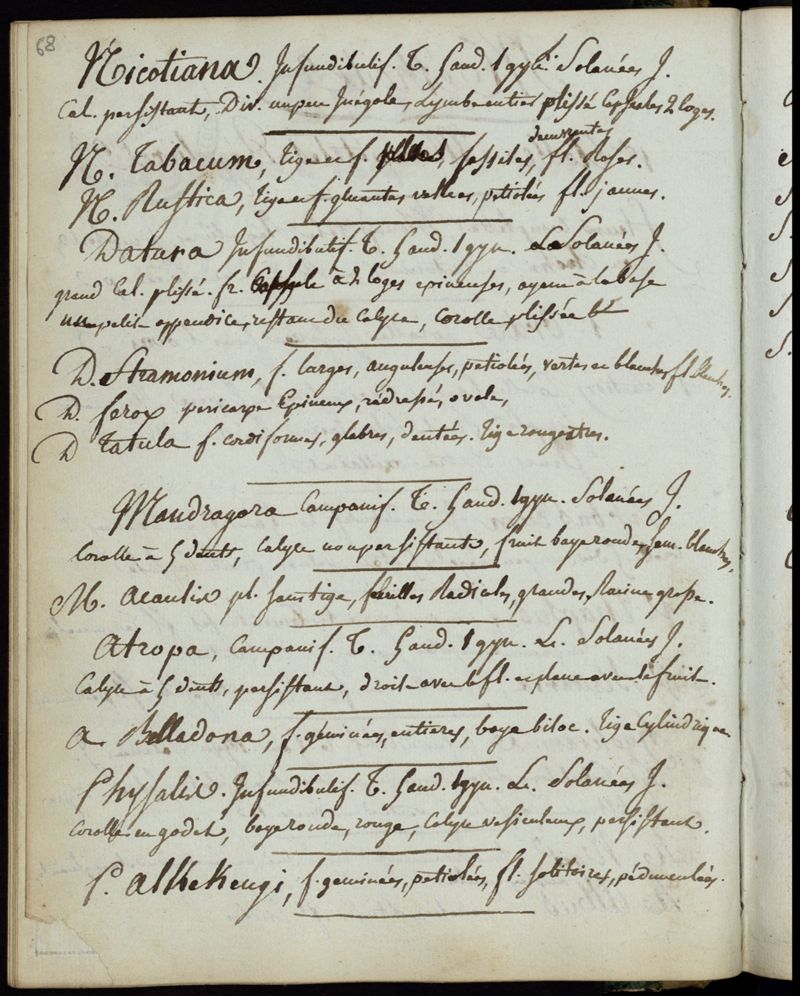 68
Nicotiana. Infundibulif. T. 5 and. 1 gyn. Solanées J.
Cal. persistant, Div. un peu Inégales, Lymbe entier plissé Capsules 2 loges.
decurrentes
N. Tabacum, Tige et f. sessiles, fl. Roses.
N. Rustica, Tige et f. gluantes velues, petiolées fl. jaunes.
Datura Infundibulif. T. 5 and. 1 gyn. L. Solanées J.
grand Cal. plissé. fr. Capsule à 2 loges epineuses, ayant à la base
un petit appendice, restant du Calyce, Corolle plissée bt
D. Stramonium, f. larges, anguleuses, petiolées, vertes et blanches fl. blanches.
D. ferox pericarpe Epineux, redressé, ovale,
D Tatula f. cordiformes, glabres, dentées. Tige rougeatres.
Mandragora Campanif. T. 5 and. 1 gyn. Solanées J.
Corolle à 5 dents, Calyce non persistante, fruit baye ronde, Sem. blanches,
M. Acaulis pl. sans tige, feuilles Radicales, grandes, Racine grosse.
Atropa, Campanif. T. 5 and. 1 gyn. L. Solanées J.
Calyce à 5 dents, persistant, droit avec la fl. et plane avec le fruit.
A. Belladona, f. géminées, entieres, baye biloc. Tige Cylindrique
Physalis. Infundibulif. T. 5 and. 1 gyn. L. Solanées J.
Corolle en godet, baye ronde, rouge, Calyce vesiculeux, persistant.
P. alkekengi, f. geminées, petiolées, fl. solitaires, pédunculées.